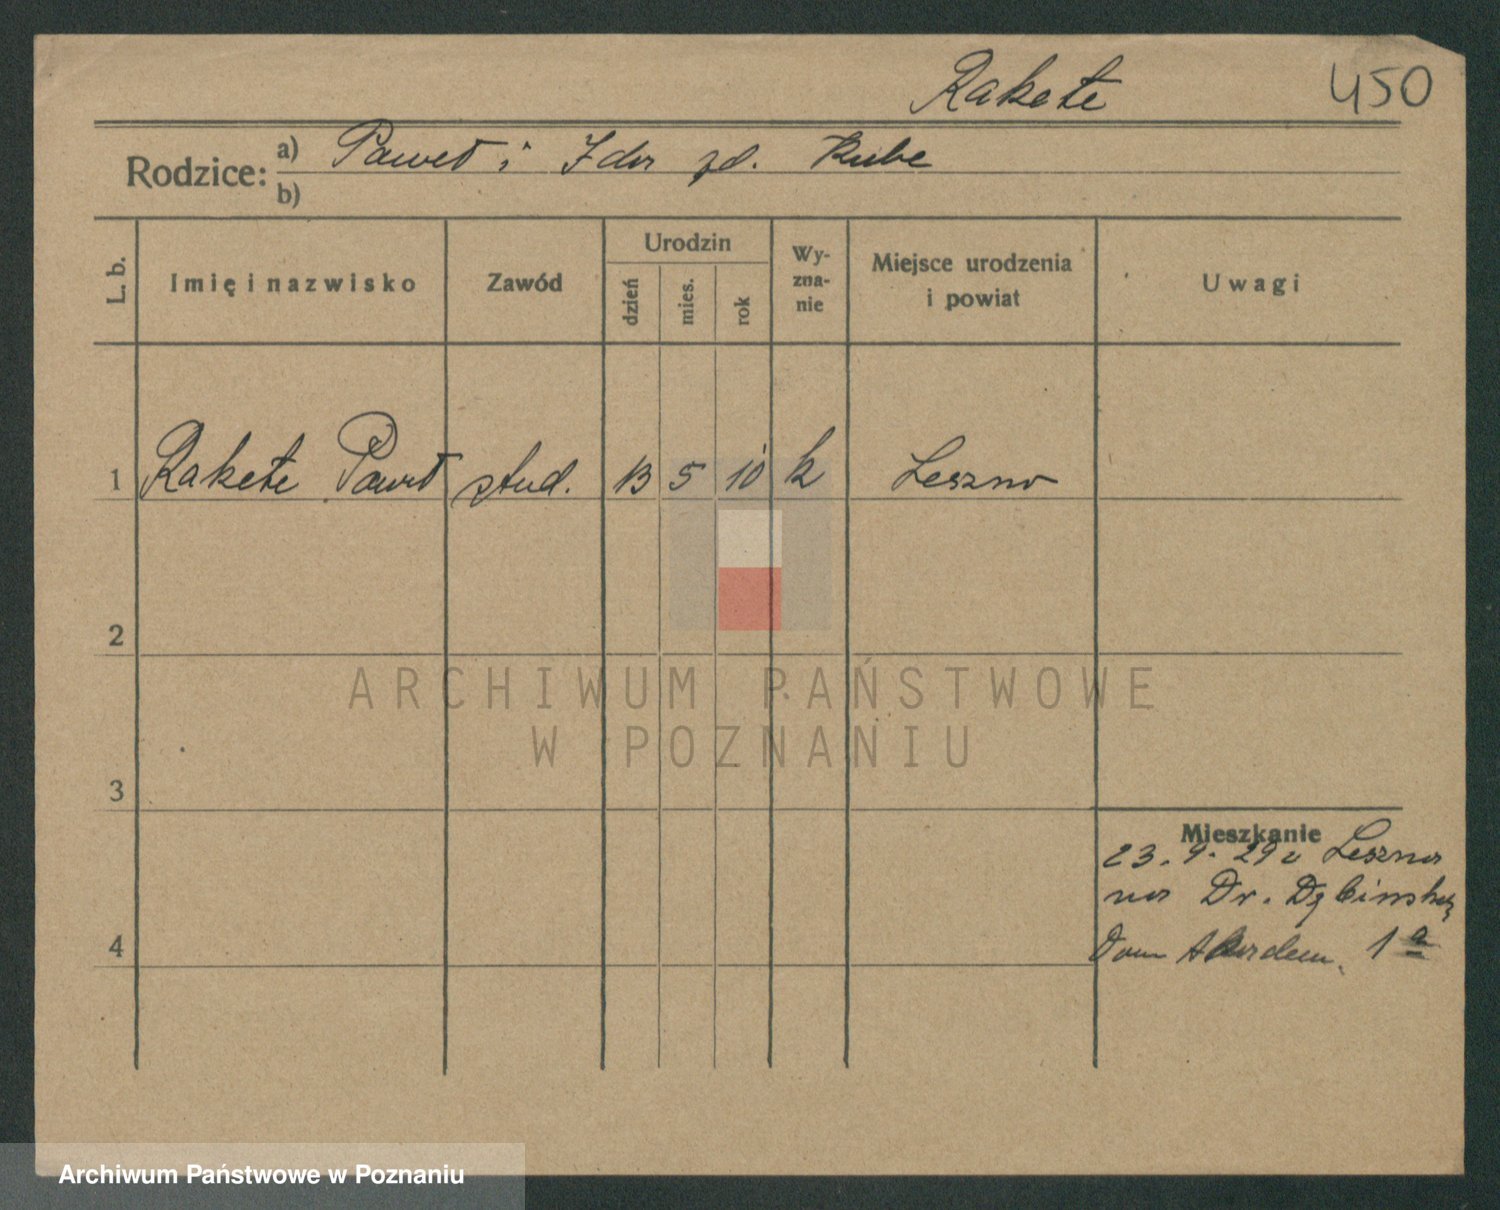 Rakete
450
Rodzice: a) Paweł i Ida zd. Kube
b)
L. b.
Imię i nazwisko
Zawód
Urodzin
dzień
mies.
rok
Wy-
zna-
nie
Miejsce urodzenia
i powiat
Uwagi
1 Rakete Paweł stud. 13 5 10 k Leszno
2
3
4
Mieszkanie
23. 9. 29 z Leszna
na Dr. Dębińską
Dom Akadem. 1a
ARCHIWUM PAŃSTWOWE
W POZNANIU
Archiwum Państwowe w Poznaniu